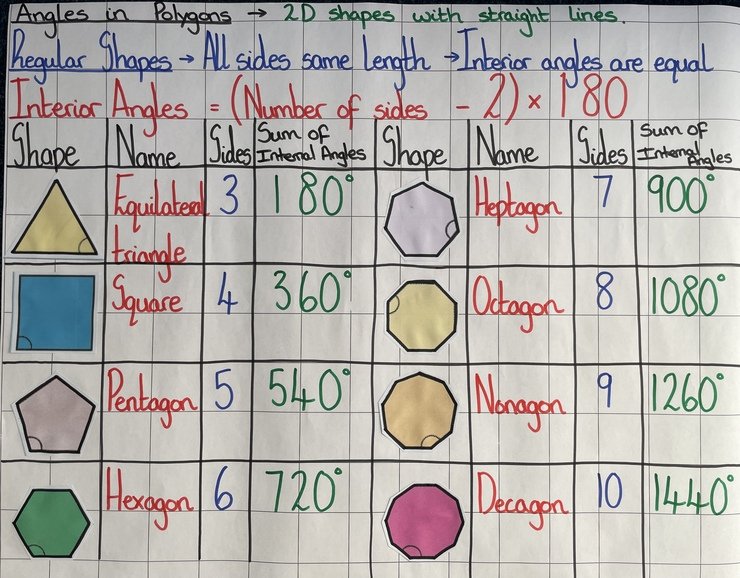 Angles in Polygons → 2D shapes with straight lines.
Regular Shapes → All sides same length → Interior angles are equal
Interior Angles = (Number of sides - 2) × 180
Shape Name Sides Sum of Internal Angles Shape Name Sides Sum of Internal Angles
Equilateral triangle 3 180° Heptagon 7 900°
Square 4 360° Octagon 8 1080°
Pentagon 5 540° Nonagon 9 1260°
Hexagon 6 720° Decagon 10 1440°